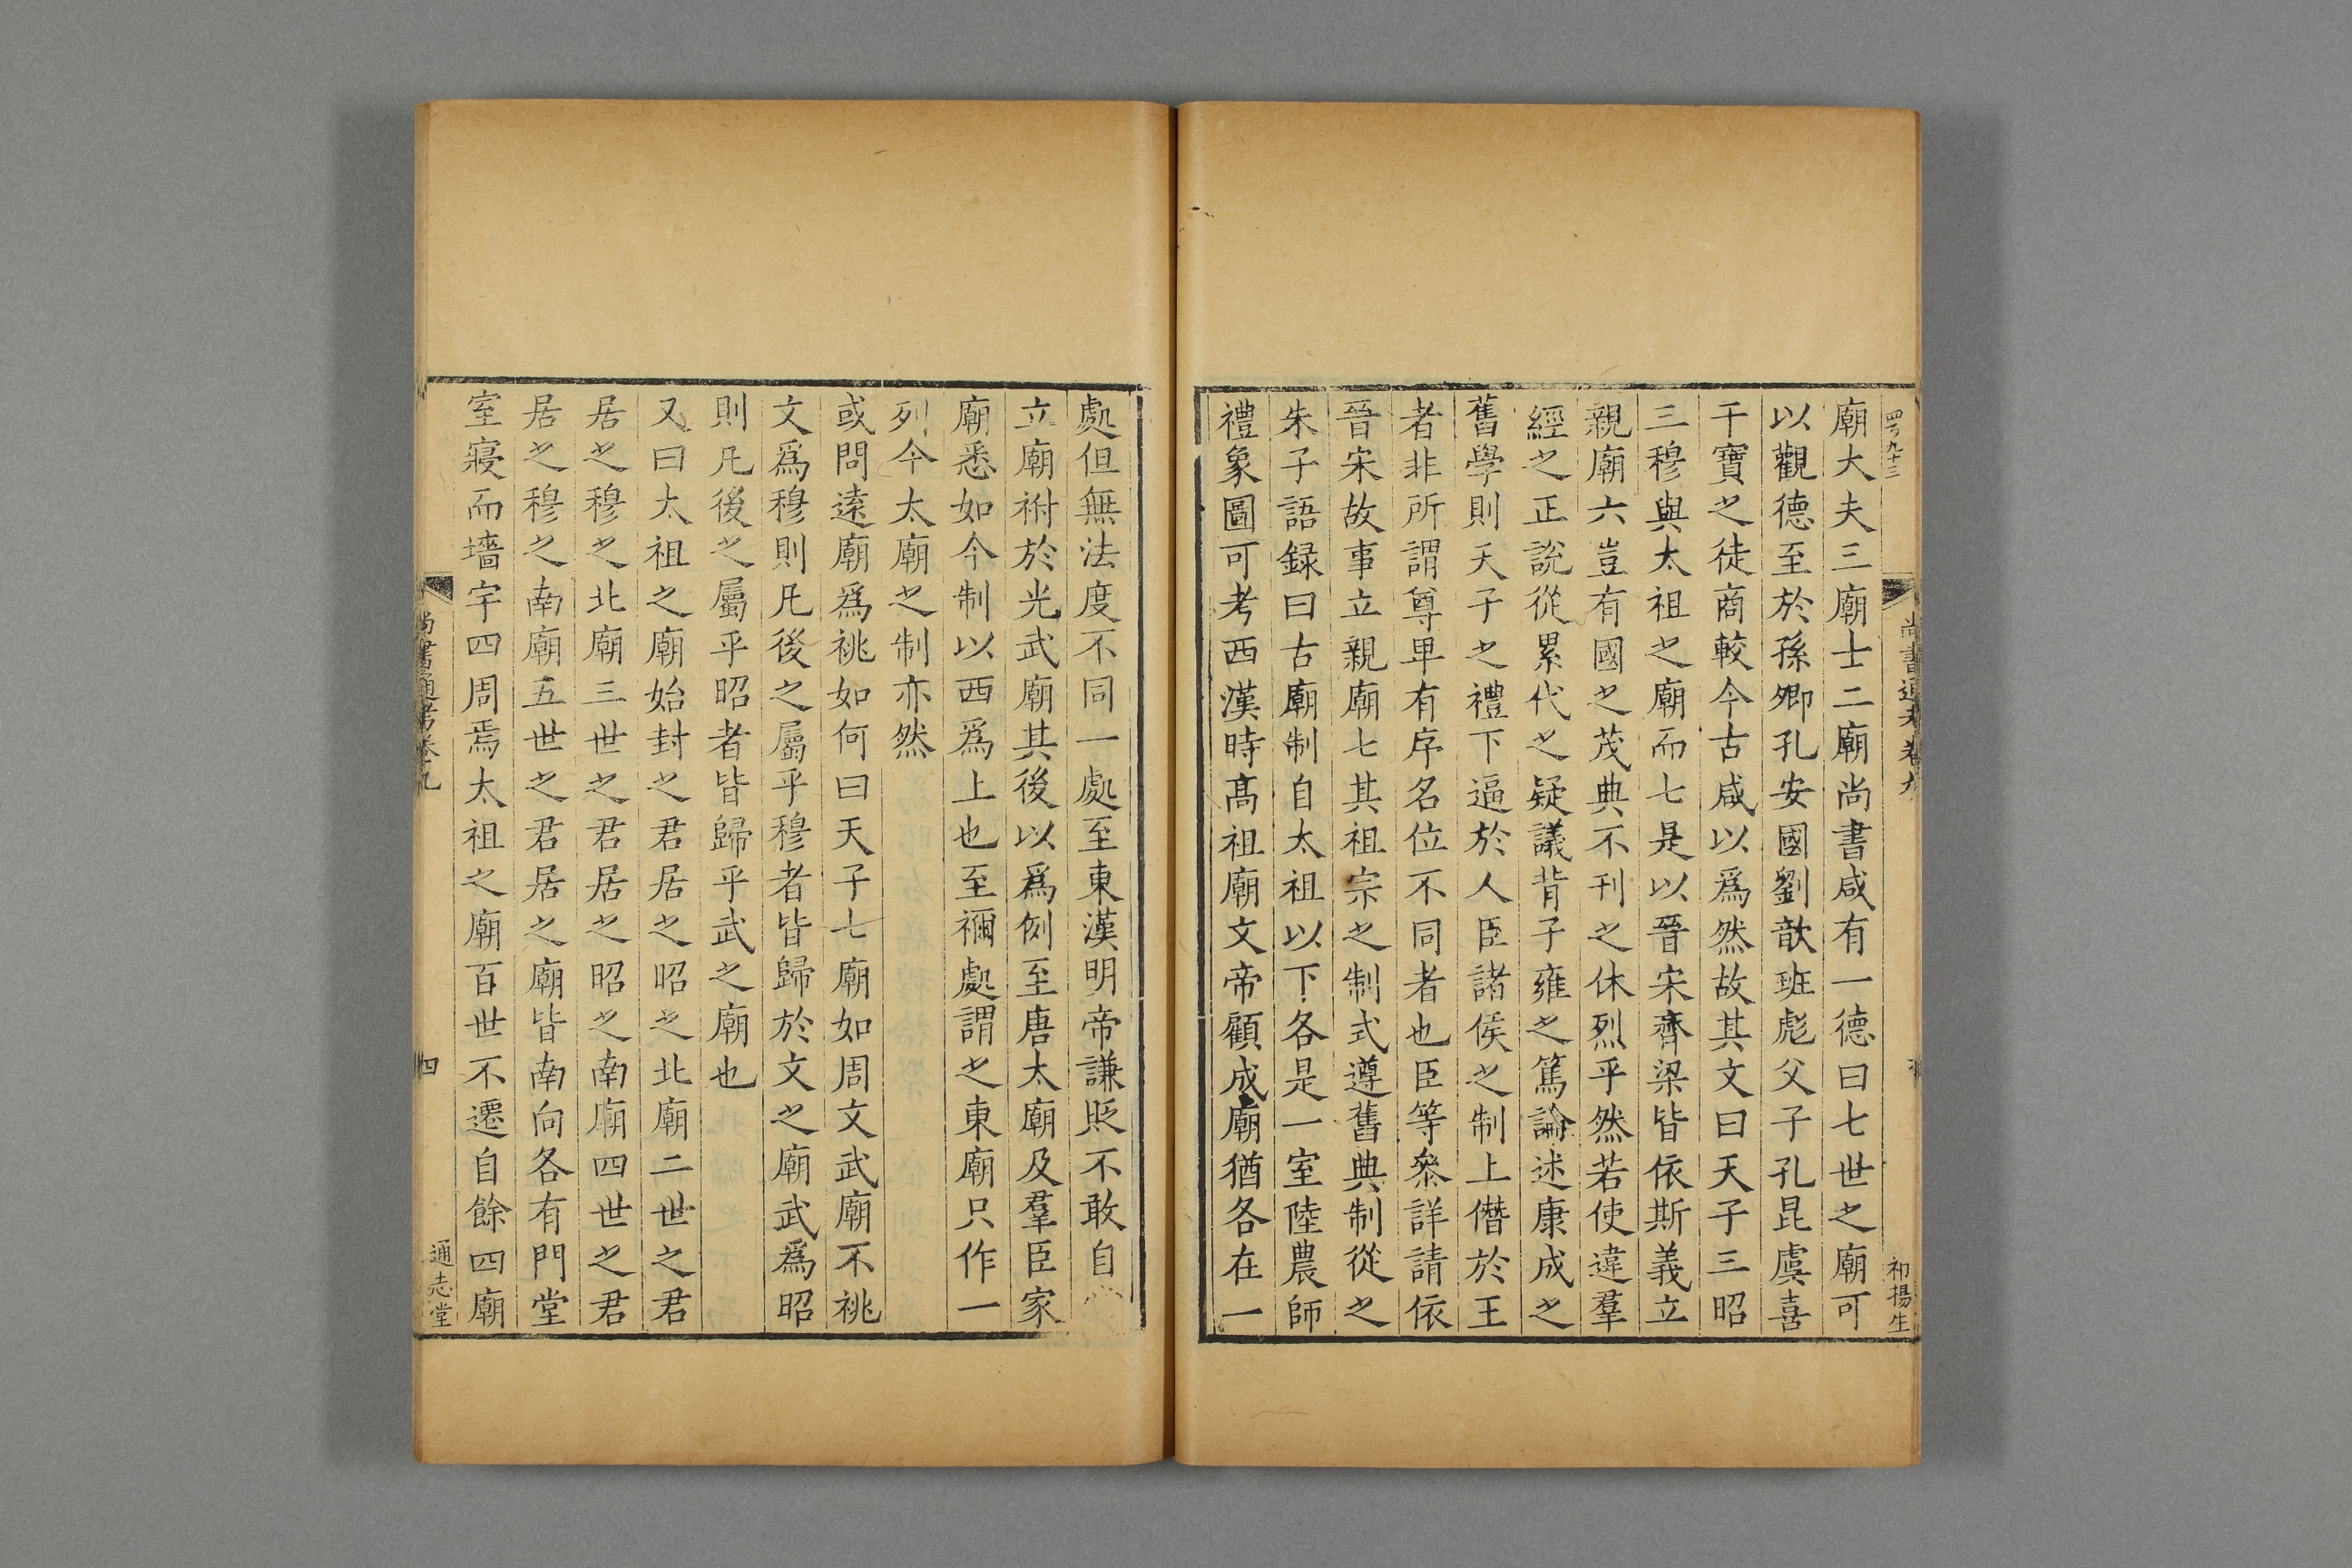 廟大夫三廟士二廟尚書咸有一德曰七世之廟可
以觀德至於孫卿孔安國劉歆班彪父子孔昆虞喜
干寶之徒商較今古咸以為然故其文曰天子三昭
三穆與太祖之廟而七是以晉宋齊梁皆依斯義立
親廟六豈有國之茂典不刊之休烈乎然若使違羣
經之正說從累代之疑議背子雍之篤論述康成之
舊學則天子之禮下逼於人臣諸侯之制上僭於王
者非所謂尊卑有序名位不同者也臣等參詳請依
晉宋故事立親廟七其祖宗之制式遵舊典制從之
朱子語録曰古廟制自太祖以下各是一室陸農師
禮象圖可考西漢時髙祖廟文帝顧成廟猶各在一
處但無法度不同一處至東漢明帝謙貶不敢自
立廟祔於光武廟其後以爲例至唐太廟及羣臣家
廟悉如今制以西爲上也至禰處謂之東廟只作一
列今太廟之制亦然
或問遠廟爲祧如何曰天子七廟如周文武廟不祧
文爲穆則凡後之屬乎穆者皆歸於文之廟武爲昭
則凡後之屬乎昭者皆歸乎武之廟也
又曰太祖之廟始封之君居之昭之北廟二世之君
居之穆之北廟三世之君居之昭之南廟四世之君
居之穆之南廟五世之君居之廟皆南向各有門堂
室寢而墻宇四周焉太祖之廟百世不遷自餘四廟
尚書通考卷九
四
通志堂